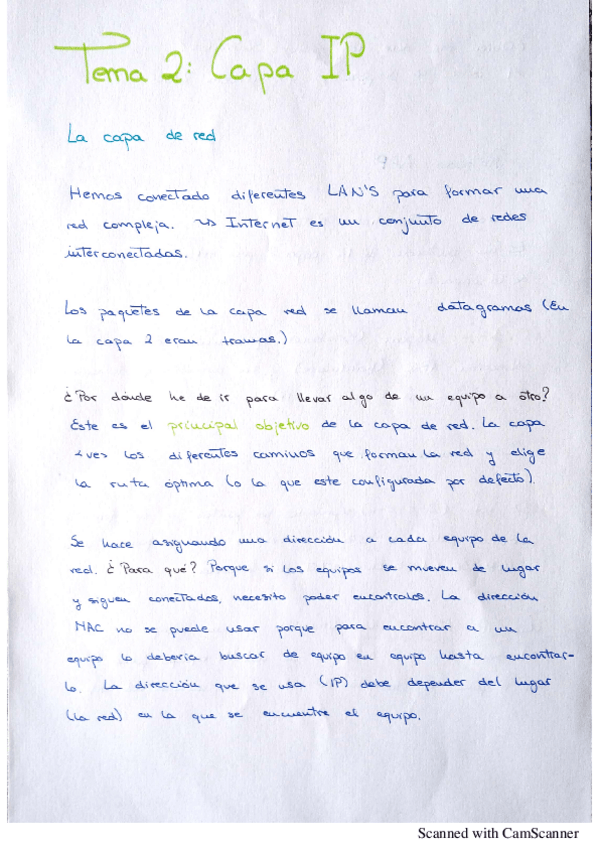 Tema 2: Capa IP
La capa de red
Hemos conectado diferentes LAN'S para formar una
red compleja. ↝ Internet es un conjunto de redes
interconectadas.
Los paquetes de la capa red se llaman datagramas (En
la capa 2 eran tramas.)
¿Por dónde he de ir para llevar algo de un equipo a otro?
Este es el principal objetivo de la capa de red. La capa
<ve> los diferentes caminos que forman la red y elige
la ruta óptima (o la que este configurada por defecto).
Se hace asignando una dirección a cada equipo de la
red. ¿Para qué? Porque si los equipos se mueven de lugar
y siguen conectados, necesito poder encontralos. La dirección
MAC no se puede usar porque para encontrar a un
equipo lo debería buscar de equipo en equipo hasta encontrar-
lo. La dirección que se usa (IP) debe depender del lugar
(la red) en la que se encuentre el equipo.
Scanned with CamScanner